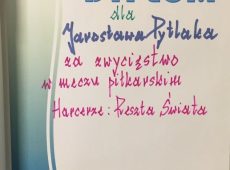 DYPLOM
dla
Jarosława Pytlaka
za zwycięstwo
w meczu piłkarskim
Harcerze : Reszta Świata